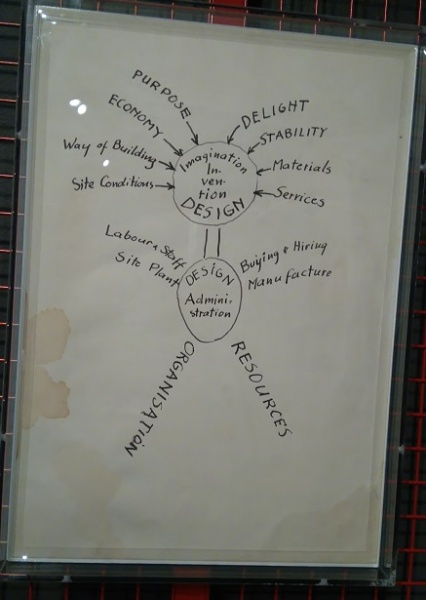 PURPOSE
ECONOMY
Way of Building
Site Conditions
DELIGHT
STABILITY
Materials
Services
Imagination
In-
ven-
tion
DESIGN
Labour & Staff
Site Plant
Buying & Hiring
Manufacture
DESIGN
Admini-
stration
ORGANISATION
RESOURCES